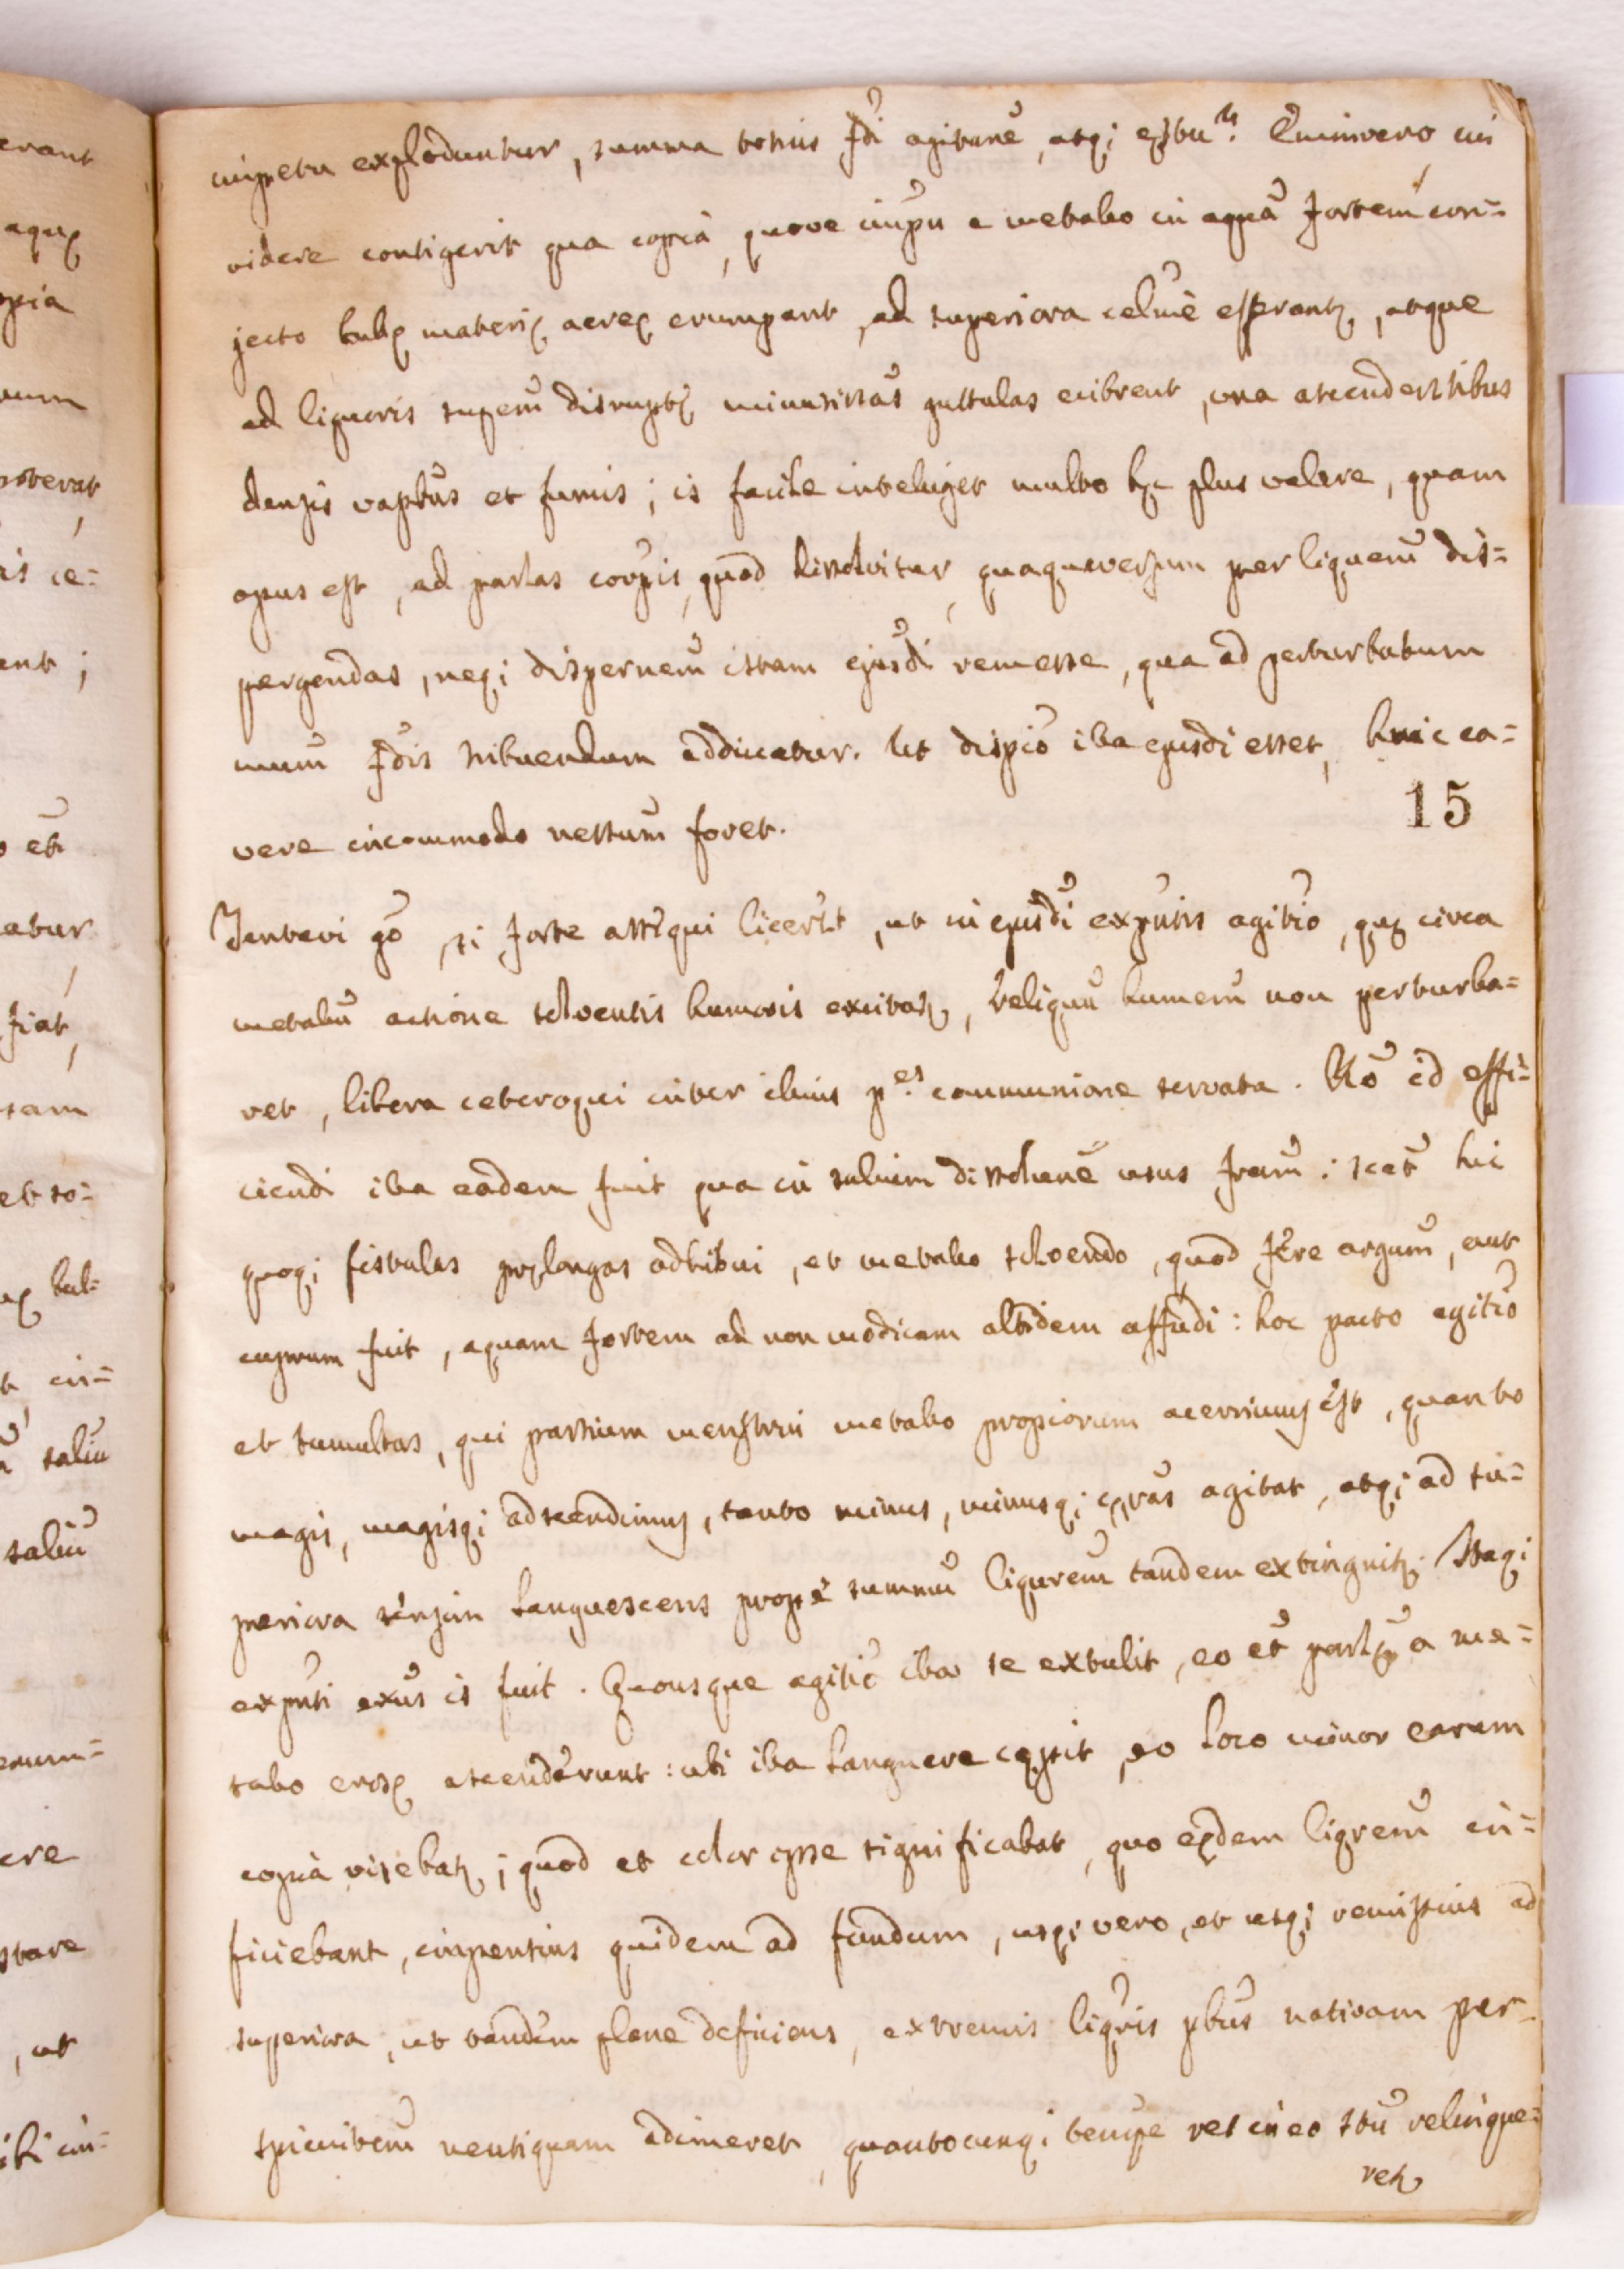 impetu exploduntur, summa totius fdi agitane, atq; estu. Quinvero cui
videre contigerit qua copia, quove impu e metallo in aquã fortem con=
jecto bullę materię aereę erumpant, ad superiora celme efferantr, atque
ad liquoris supem disruptę minutissas guttulas evibrent, una ascendentibus
densis vapbus et fumis; is facile inteliget multo hęc plus valere, quam
opus est, ad partlas corpis, quod dissolvitur, quaquaversum per liquem dis=
pergendas, neq; dispernem istam ejusdi rem esse, qua ad perturbatum
mum fdis tribuendum adducatur. Ut dispio illa ejusdi esset, huic ca=
vere incommodo nessum foret.
15
Tentavi go, si forte assqui licerct, ut in ejusdi exputis agitio, quę circa
metalũ actione solventis humoris excitatr, reliquũ humem non perturba=
ret, libera ceteroqui inter illius pes communione servata. Ro id effi=
ciendi illa eadem fuit qua in salium dissolune usus fram: scet hic
quoq; fistulas pręlongas adhibui, et metallo solvendo, quod fere argum, aut
cuprum fuit, aquam fortem ad non modicam altidem affudi: hoc pacto agitio
et tumultus, qui partium menstrui metallo propiorum acerrimus est, quanto
magis, magisq; adscendimus, tanto minus, minusq; cęras agitat, atq; ad su=
periora sensim languescens prope summũ liqurem tandem extinguitr. Itaq;
exputi exus is fuit. Quousque agitio illa se extulit, eo et partlę a me=
tallo erosę ascenderunt: ubi illa languere cępit, eo loco minor earum
copia visebatr; quod et color ipse significabat, quo eędem liqrem in=
ficiebant, impensius quidem ad fundum, usq; vero, et usq; remissius ad
superiora, ut tandem plane deficiens, extremis liqris pbus nativam per=
spicuitem neutiquam adimeret, quantocunq; tempe res in eo stu relinque=
retr